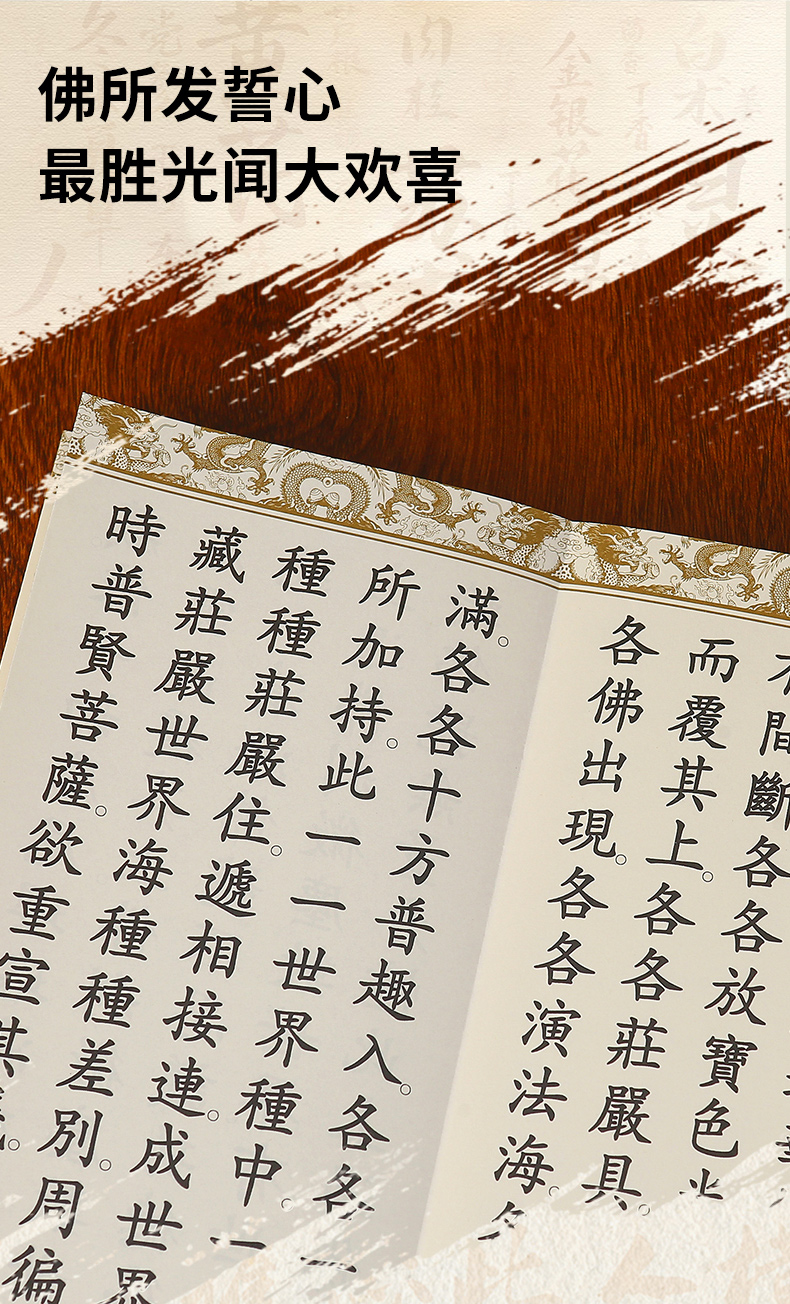 佛所发誓心
最胜光闻大欢喜
不間斷各各放寶色光
而覆其上。各各莊嚴具。
各佛出現。各各演法海。各
滿。各各十方普趣入。各各一
所加持。此一一世界種中。一
種種莊嚴住。遞相接連。成世界
藏莊嚴世界海種種差別。周徧
時普賢菩薩。欲重宣其義。